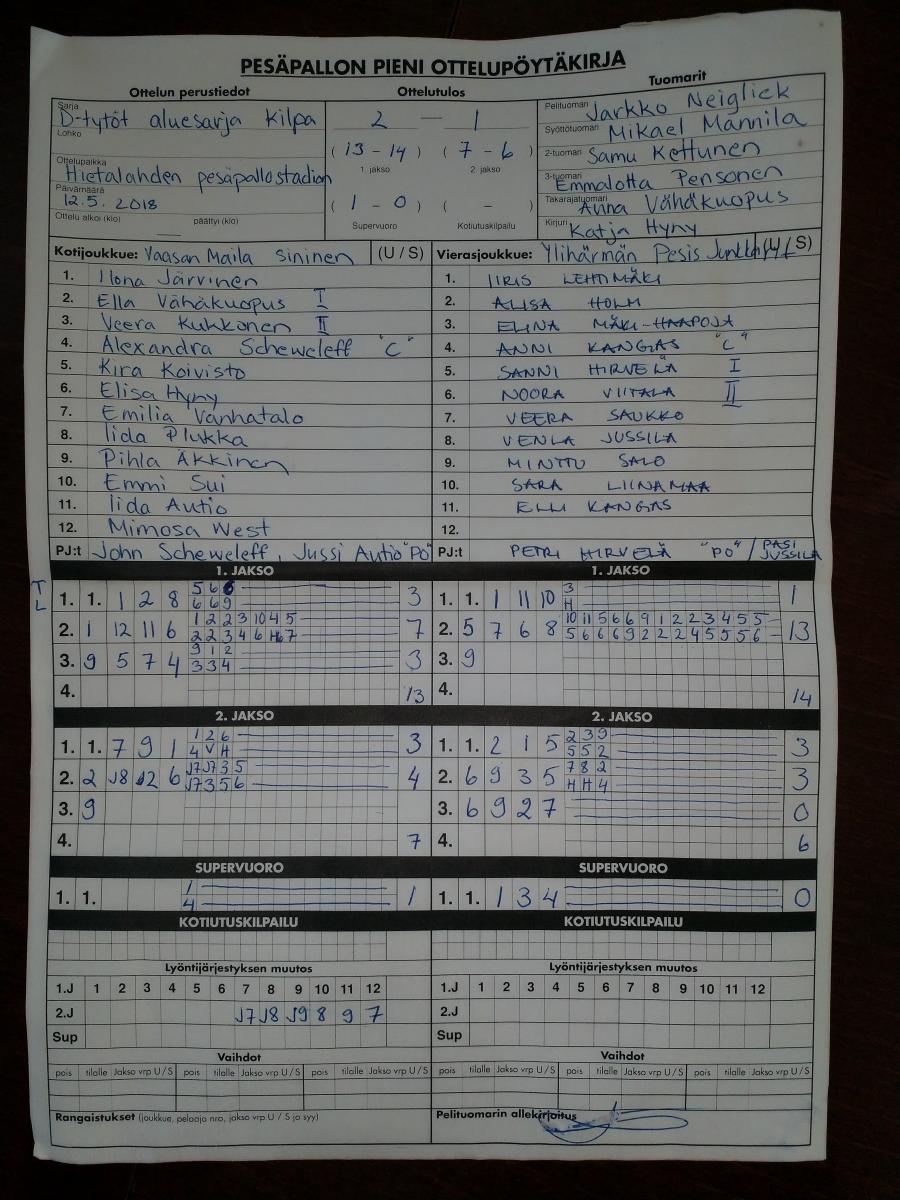 PESÄPALLON PIENI OTTELUPÖYTÄKIRJA
Ottelun perustiedot Ottelutulos Tuomarit
Sarja D-tytöt aluesarja Kilpa
Lohko
Ottelupaikka Hietalahden pesäpallostadion
Päivämäärä 12.5. 2018
Ottelu alkoi (klo) päättyi (klo)
2 — 1
( 13 - 14 ) ( 7 - 6 )
1. jakso 2. jakso
( 1 - 0 ) ( - )
Supervuoro Kotiutuskilpailu
Pelituomari Jarkko Neiglick
Syöttötuomari Mikael Mannila
2-tuomari Samu Kettunen
3-tuomari Emmalotta Pensonen
Takarajatuomari Anna Vähäkuopus
Kirjuri Katja Hyny
Kotijoukkue: Vaasan Maila Sininen (U / S)
1. Ilona Järvinen
2. Ella Vähäkuopus I
3. Veera Kukkonen II
4. Alexandra Scheweleff "C"
5. Kira Koivisto
6. Elisa Hyny
7. Emilia Vanhatalo
8. Iida Plukka
9. Pihla Äkkinen
10. Emmi Sui
11. Iida Autio
12. Mimosa West
PJ:t John Scheweleff, Jussi Autio "PO"
Vierasjoukkue: Ylihärmän Pesis Junkkarit (U / S)
1. IIRIS LEHTIMÄKI
2. ALISA HOLM
3. ELINA MÄKI-HAAPOJA
4. ANNI KANGAS "C"
5. SANNI HIRVELÄ I
6. NOORA VIITALA II
7. VEERA SAUKKO
8. VENLA JUSSILA
9. MINTTU SALO
10. SARA LIINAMAA
11. ELLI KANGAS
12.
PJ:t PETRI HIRVELÄ "PO" / PASI JUSSILA
1. JAKSO
T L
1. 1. 1 2 8 3
5 6
6 6 9
2. 1 12 11 6 7
1 2 2 3 10 4 5
2 2 3 4 6 7
3. 9 5 7 4 3
9 1 2
3 3 4
4. 13
1. JAKSO
1. 1. 1 11 10 1
3
H
2. 5 7 6 8 13
10 11 5 6 6 9 1 2 2 3 4 5 5
5 6 6 6 9 2 2 2 4 5 5 5 6
3. 9
4. 14
2. JAKSO
1. 1. 7 9 1 3
1 2 6
4 V H
2. 2 J8 J2 6 4
J7 J7 3 5
J7 3 5 6
3. 9
4. 7
2. JAKSO
1. 1. 2 1 5 3
2 3 9
5 5 2
2. 6 9 3 5 3
7 8 2
H H 4
3. 6 9 2 7 0
4. 6
SUPERVUORO
1. 1. 1
1
4
SUPERVUORO
1. 1. 1 3 4 0
KOTIUTUSKILPAILU KOTIUTUSKILPAILU
Lyöntijärjestyksen muutos
1.J 1 2 3 4 5 6 7 8 9 10 11 12
2.J J7 J8 J9 8 9 7
Sup
Lyöntijärjestyksen muutos
1.J 1 2 3 4 5 6 7 8 9 10 11 12
2.J
Sup
Vaihdot Vaihdot
pois tilalle Jakso vrp U / S pois tilalle Jakso vrp U / S pois tilalle Jakso vrp U / S
pois tilalle Jakso vrp U / S pois tilalle Jakso vrp U / S pois tilalle Jakso vrp U / S
Rangaistukset (joukkue, pelaaja nro, jakso vrp U / S ja syy)
Pelituomarin allekirjoitus